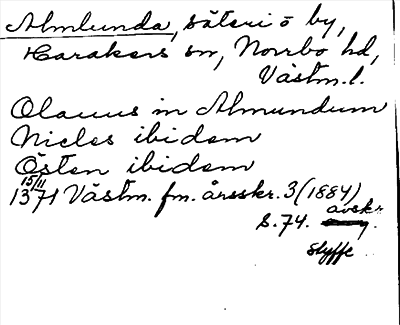 Almlunda, säteri o by,
Harakers sn, Norrbo hd,
Västm. l.
Olauus in Almundum
Niclos ibidem
Östen ibidem
15/11
1371 Västm. fm. årsskr. 3 (1884)
s. 74. avskr.
Styffe